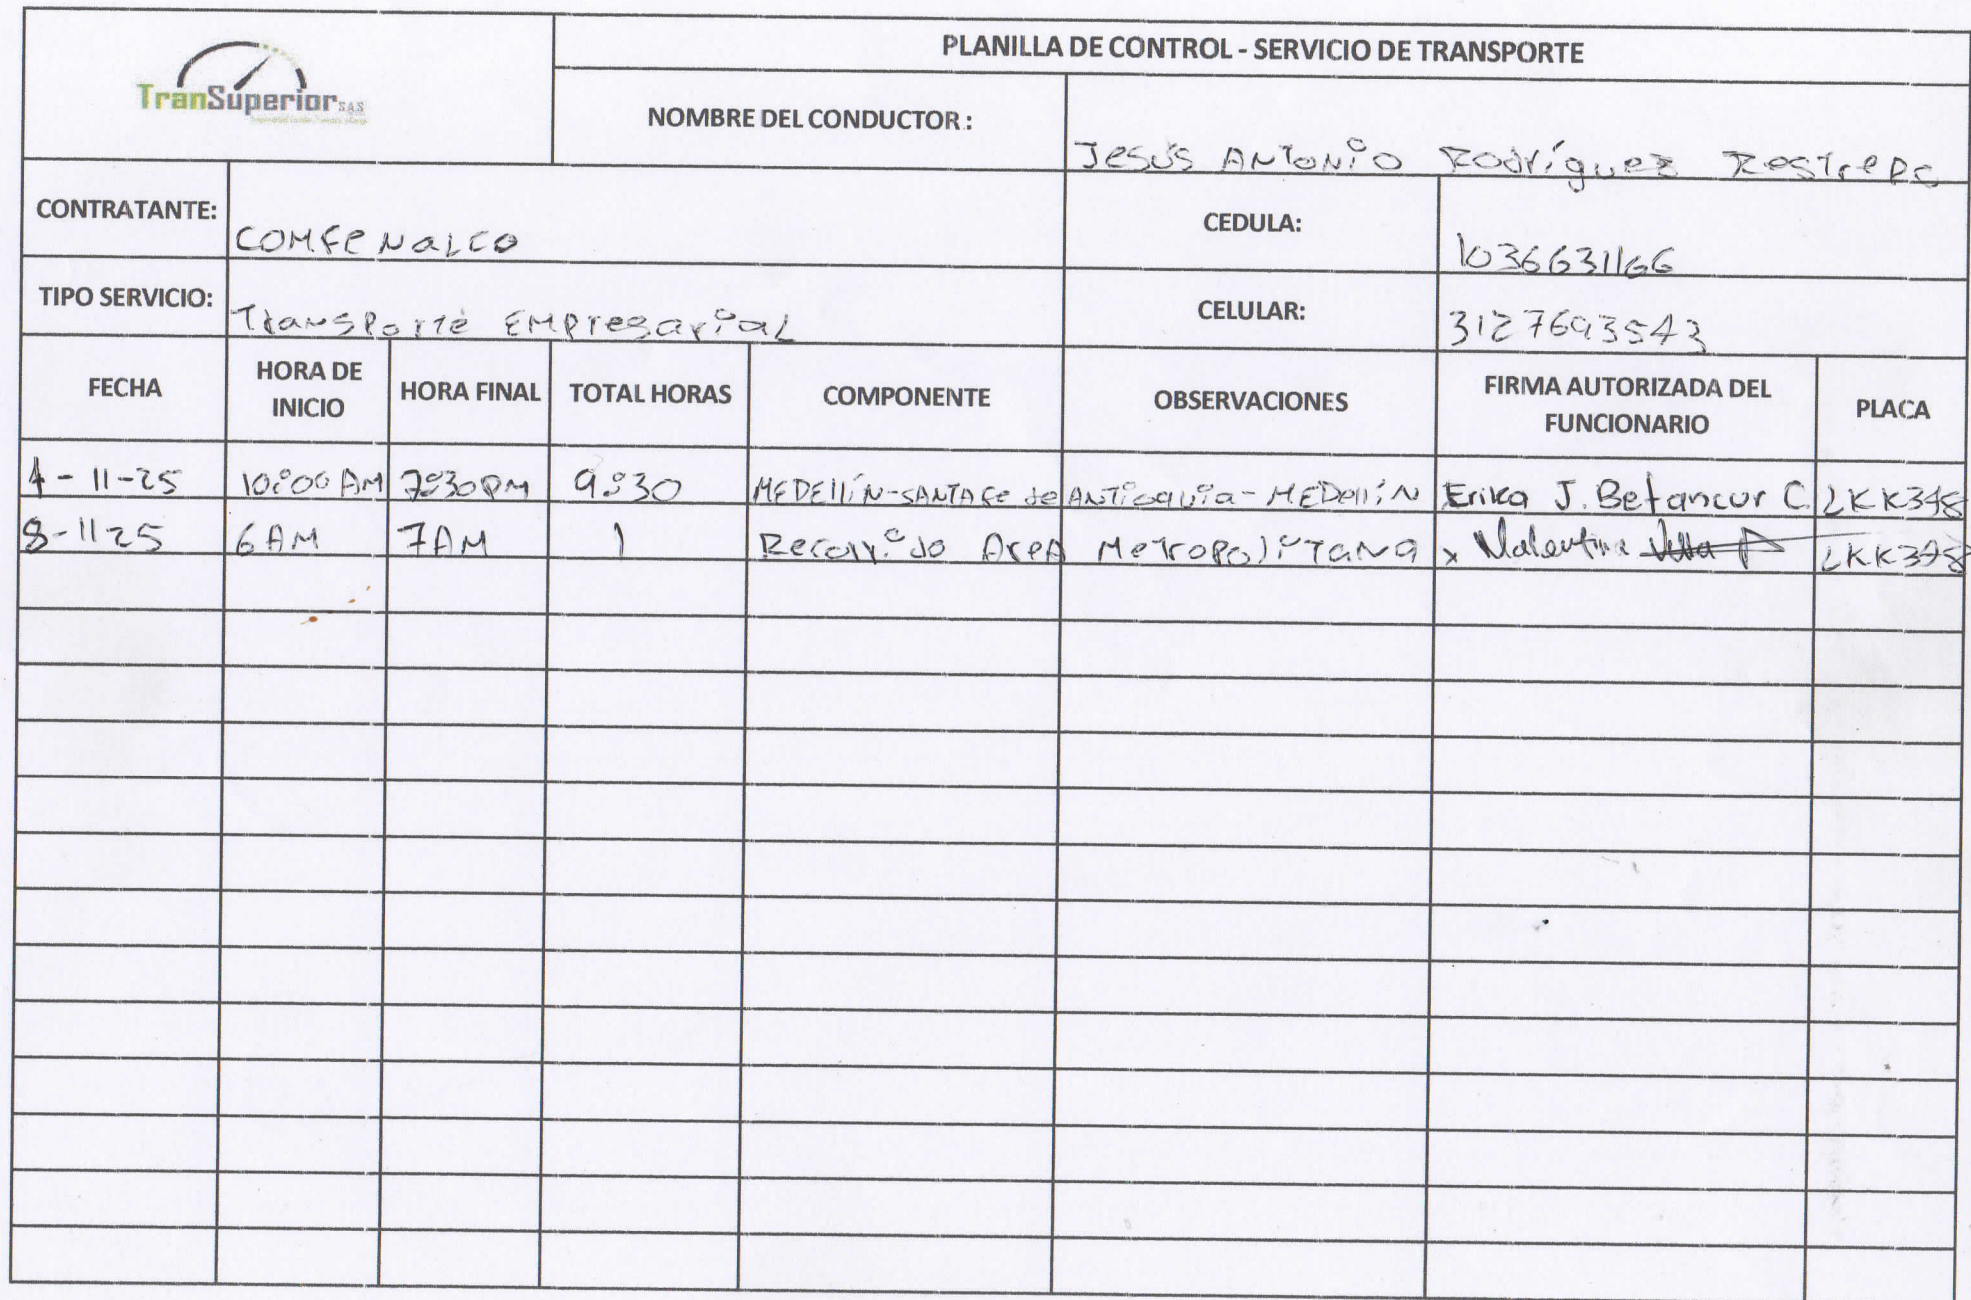 PLANILLA DE CONTROL - SERVICIO DE TRANSPORTE
TranSuperior S.A.S
NOMBRE DEL CONDUCTOR: Jesús Antonio Rodríguez Restrepo
CONTRATANTE: COMFENALCO CEDULA: 1036631166
TIPO SERVICIO: Transporte Empresarial CELULAR: 3127693543
FECHA HORA DE INICIO HORA FINAL TOTAL HORAS COMPONENTE OBSERVACIONES FIRMA AUTORIZADA DEL FUNCIONARIO PLACA
4-11-25 10:00 AM 7:30 PM 9:30 MEDEllíN-SANTAFE de ANTioquia-MEDellíN Erika J. Betancur C. LKK348
8-11 25 6 AM 7 AM 1 Recorrido AreA MetropoliTaNa x Valentina LKK348